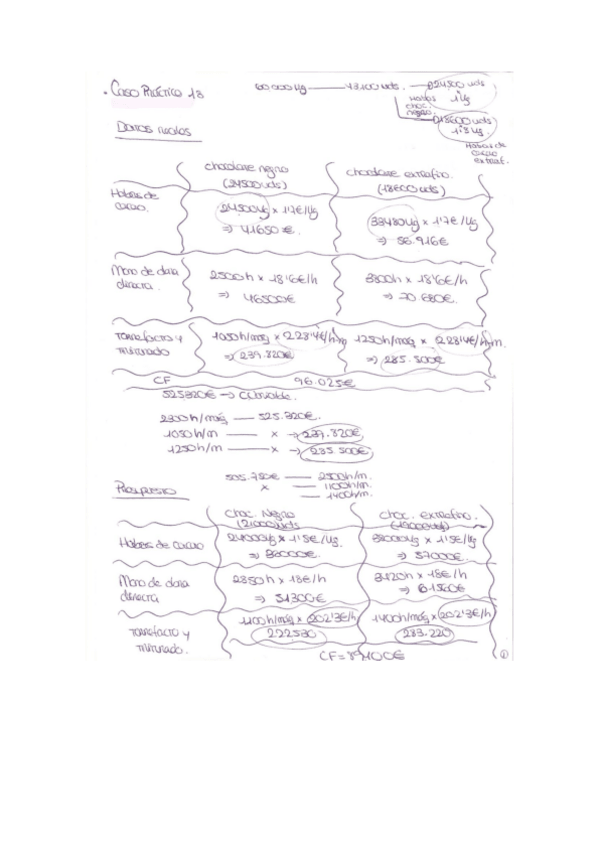 • Caso Práctico 13
60 000 Kg — 43100 uds. — 24500 uds
Habas choc. negro 1 Kg
18600 uds
1'8 Kg.
Habas de cacao extraf.
Datos reales
chocolate negro (24500 uds)
chocolate extrafino. (18600 uds)
Habas de cacao.
24500 Kg x 1'7€/Kg
⇒ 41650 €.
33480 Kg x 1'7€/Kg
⇒ 56.916€
Mano de obra directa.
2500 h x 18'6€/h
⇒ 46500€
3800h x 18'6€/h
⇒ 70 680€.
Torrefacto y triturado
1050h/máq x 228'4€/h.m
⇒ 239.820€
1250h/máq x 228'4€/h.m.
⇒ 285.500€
CF 96.025€
525320€ → C. variable.
2300 h/máq — 525.320€.
1050 h/m — x → 239.820€
1250 h/m — x → 285.500€
505.750€ — 2500h/m.
x — 1100h/m.
— 1400h/m.
Presupuesto
Choc. Negro (21000 uds
choc. extrafino. (19000 uds)
Habas de cacao
x 1'5€/Kg.
⇒
38000 Kg x 1'5€/Kg
⇒ 57000€.
Mano de obra directa
2850 h x 18€/h
⇒ 51300€
3420h x 18€/h
⇒ 61560€
Torrefacto y triturado.
1100h/máq x 202'3€/h
222530
1400h/máq x 202'3€/h
283.220
CF = 89100€
1